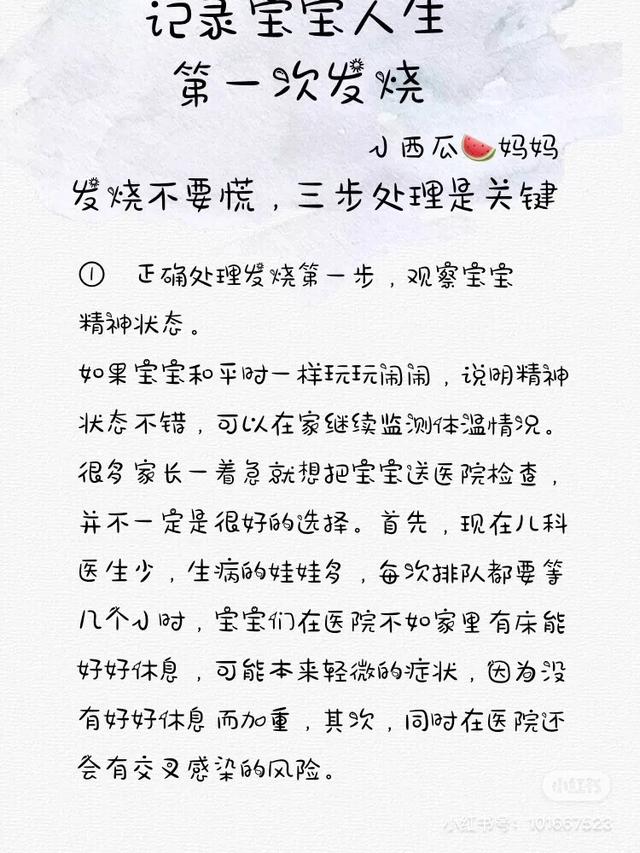 记录宝宝人生
第一次发烧
小西瓜🍉妈妈
发烧不要慌，三步处理是关键
① 正确处理发烧第一步，观察宝宝
精神状态。
如果宝宝和平时一样玩玩闹闹，说明精神
状态不错，可以在家继续监测体温情况。
很多家长一着急就想把宝宝送医院检查，
并不一定是很好的选择。首先，现在儿科
医生少，生病的娃娃多，每次排队都要等
几个小时，宝宝们在医院不如家里有床能
好好休息，可能本来轻微的症状，因为没
有好好休息而加重，其次，同时在医院还
会有交叉感染的风险。
小红书
小红书号：101667523